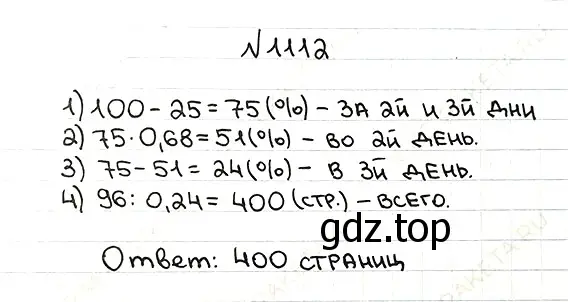 №1112
1) 100 - 25 = 75 (%) - ЗА 2Й И 3Й ДНИ
2) 75 · 0,68 = 51 (%) - ВО 2Й ДЕНЬ.
3) 75 - 51 = 24 (%) - В 3Й ДЕНЬ.
4) 96 : 0,24 = 400 (СТР.) - ВСЕГО.
gdz.top
Ответ: 400 СТРАНИЦ